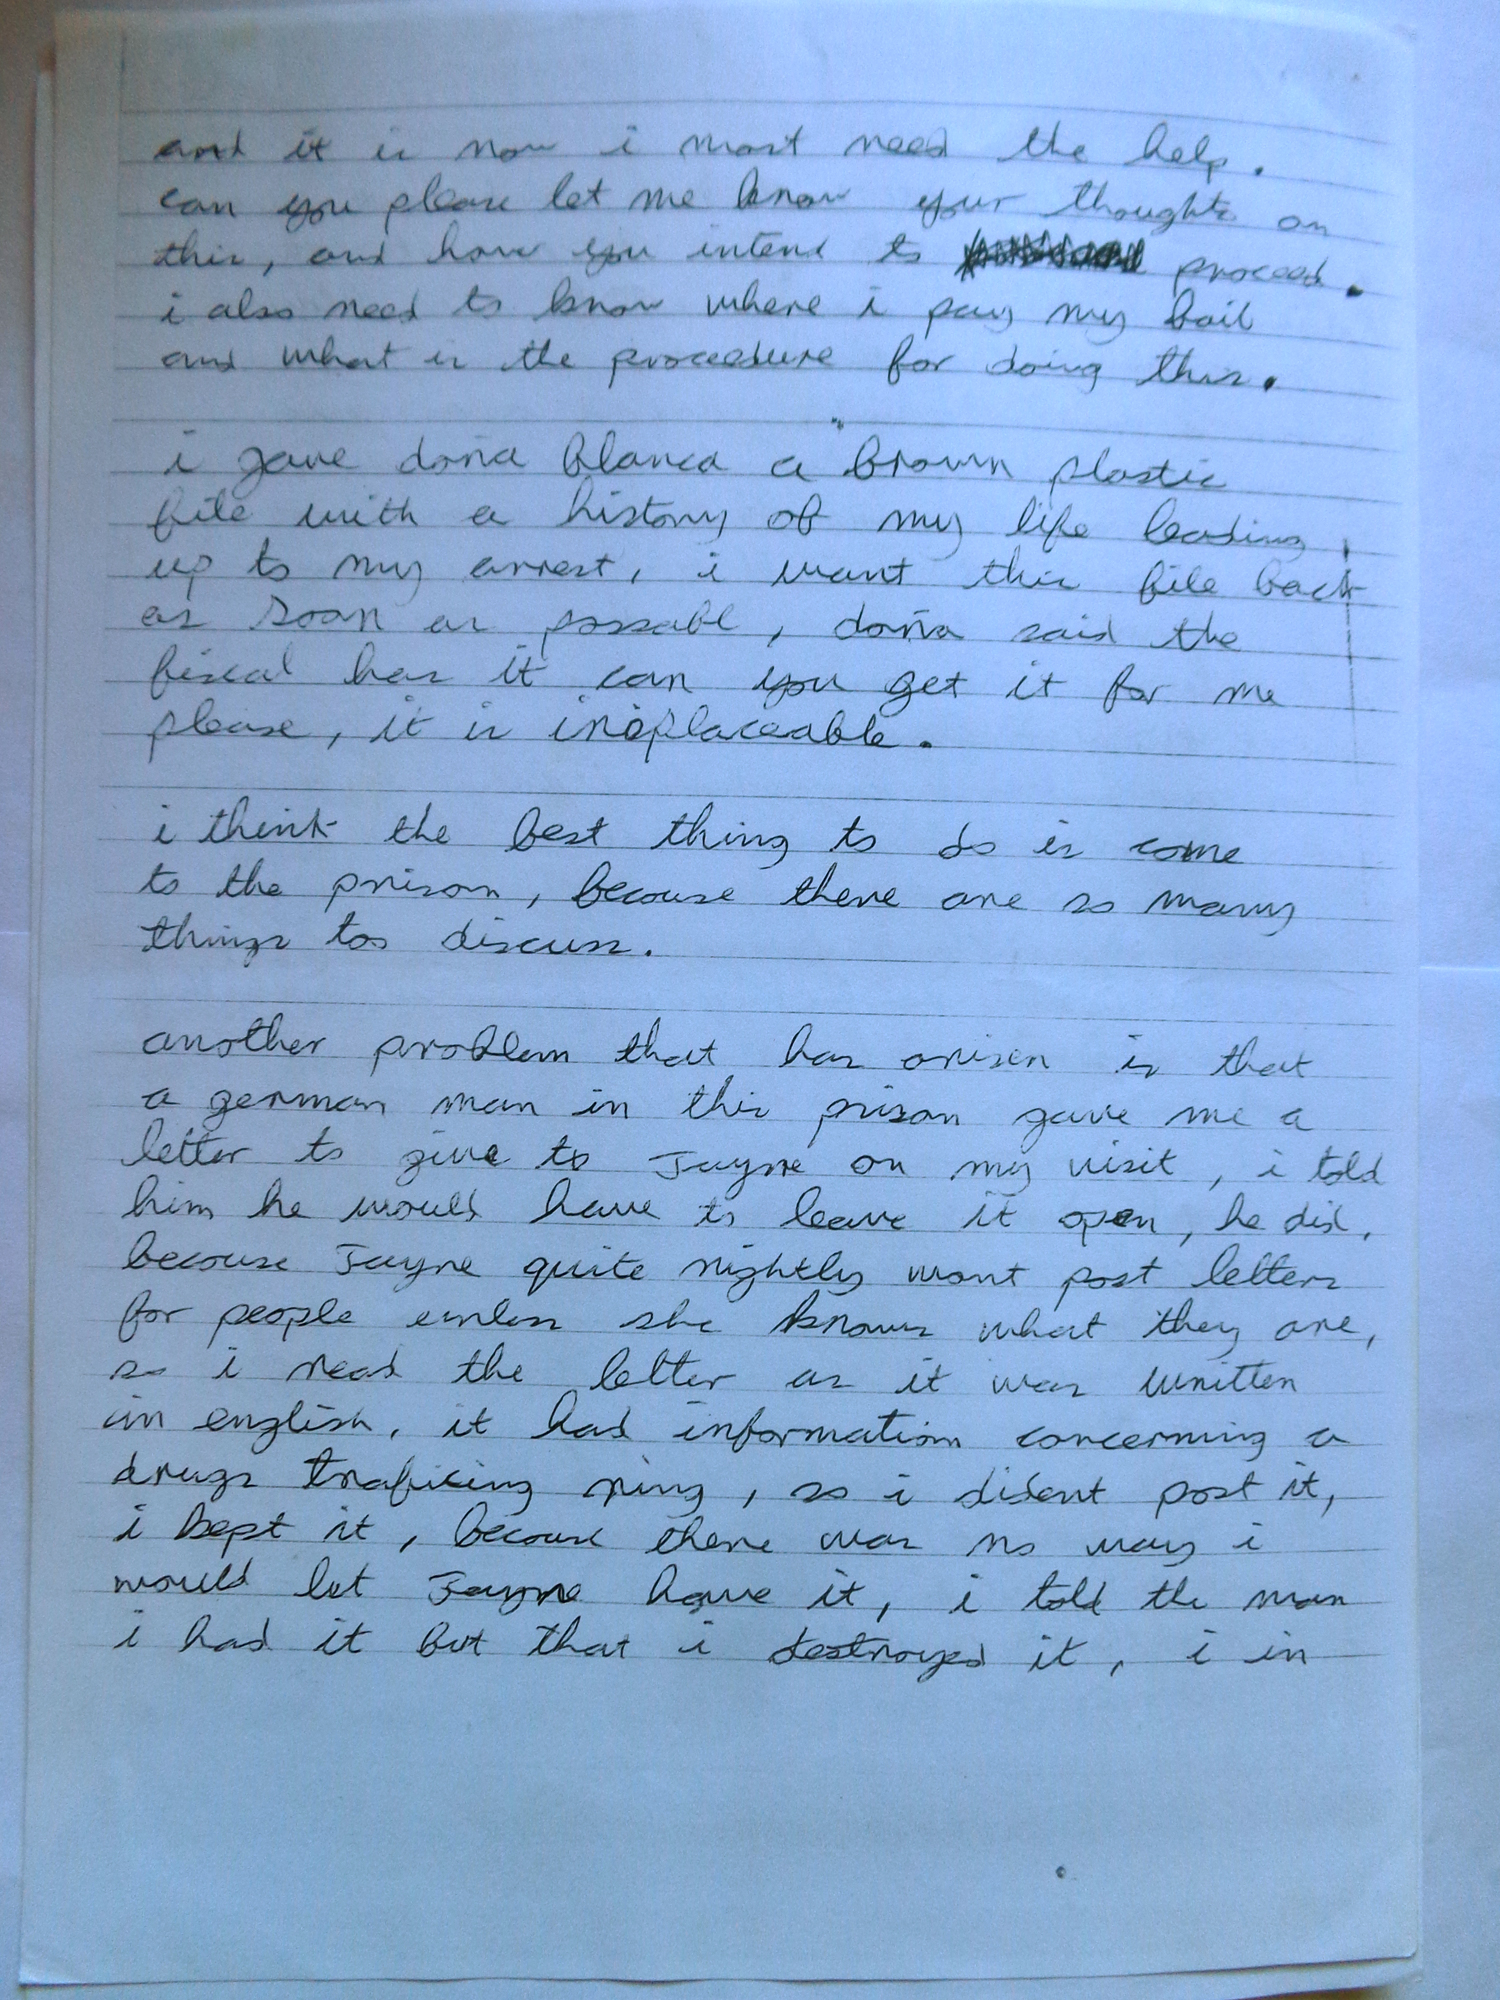 and it is now i most need the help.
can you please let me know your thoughts on
this, and how you intend to proceed.
i also need to know where i pay my bail
and what is the procedure for doing this.
i gave doña blanca a brown plastic
file with a history of my life leading
up to my arrest, i want this file back
as soon as possabl, doña said the
fiscal has it can you get it for me
please, it is ireplaceable.
i think the best thing to do is come
to the prison, because there are so many
things too discuss.
another problem that has arisen is that
a german man in this prison gave me a
letter to give to Jayne on my visit, i told
him he would have to leave it open, he did,
because Jayne quite rightly wont post letters
for people unless she knows what they are,
so i read the letter as it was written
in english, it had information concerning a
drugs traficing ring, so i dident post it,
i kept it, because there was no way i
would let Jayne have it, i told the man
i had it but that i destroyed it, i in